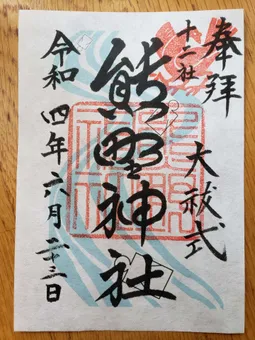 奉拝
大祓式
十二社
熊野神社
令和四年六月二十三日